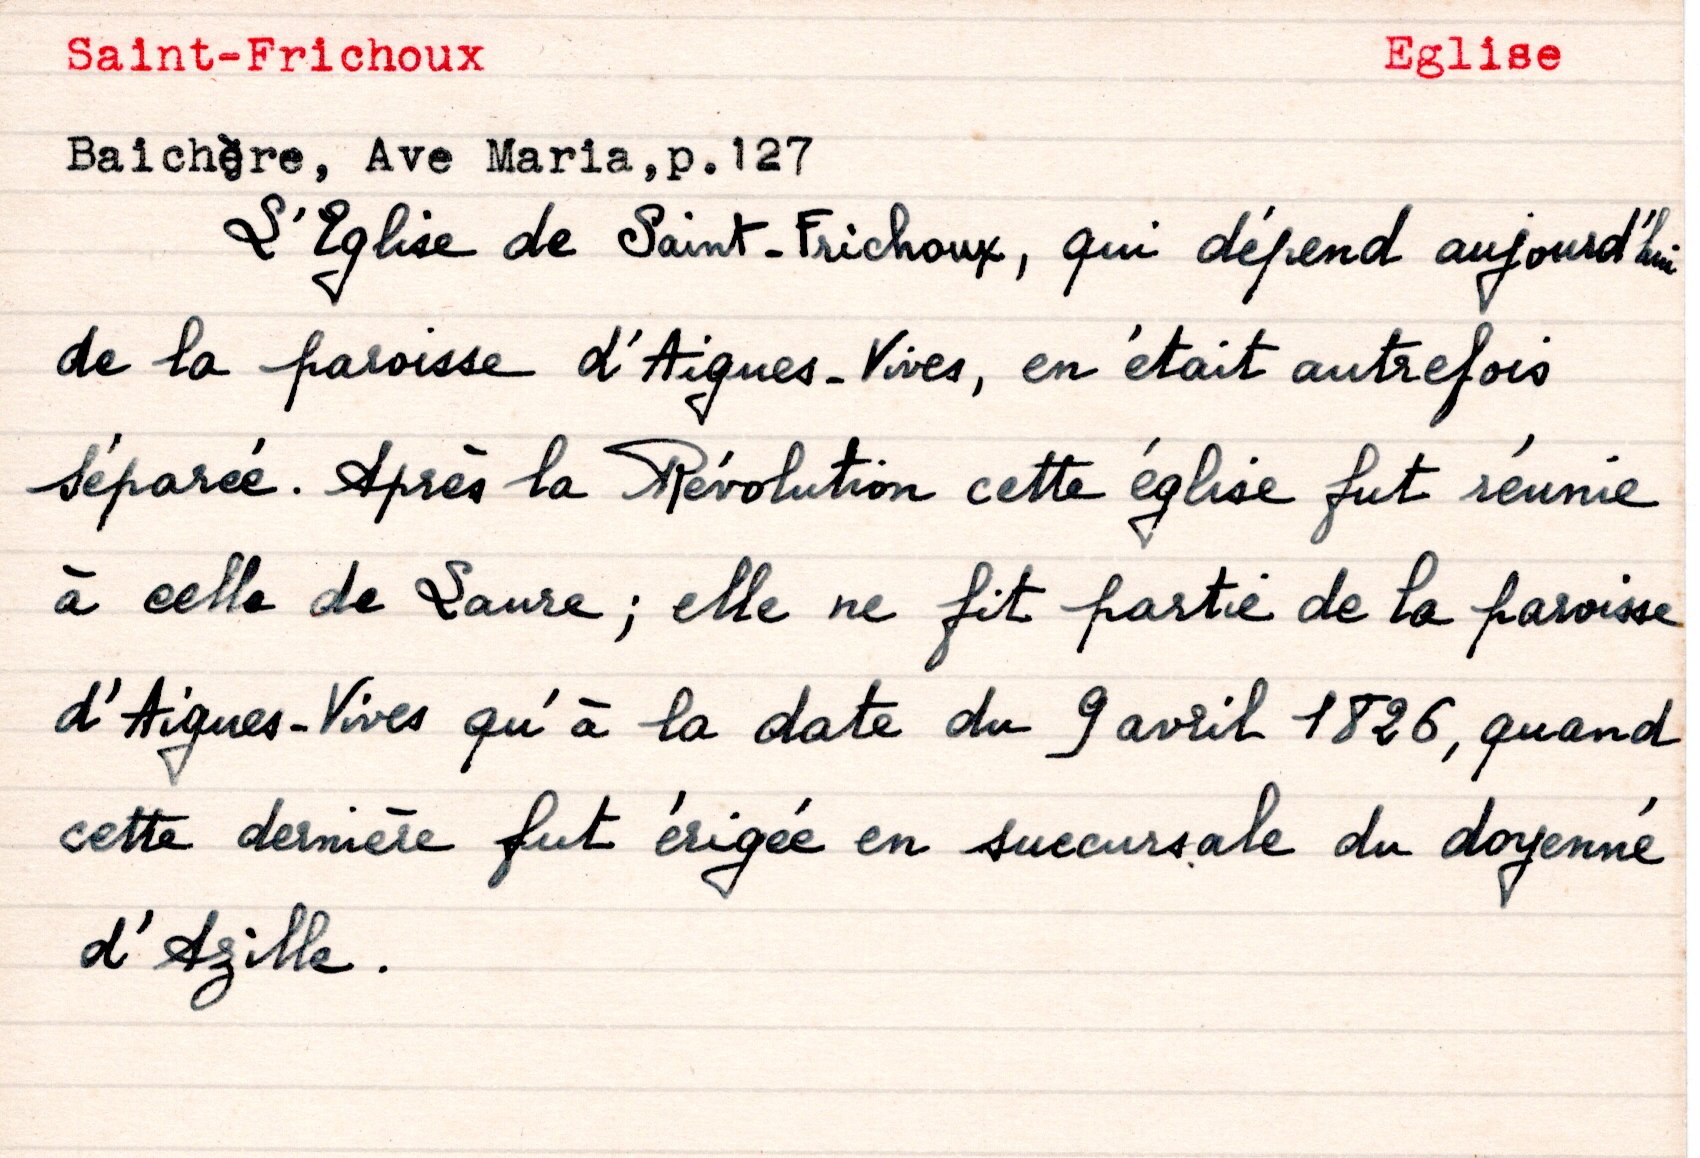 Saint-Frichoux Eglise
Baichère, Ave Maria,p.127
L'Eglise de Saint-Frichoux, qui dépend aujourd'hui
de la paroisse d'Aigues-Vives, en était autrefois
séparée. Après la Révolution cette église fut réunie
à celle de Laure; elle ne fit partie de la paroisse
d'Aigues-Vives qu'à la date du 9 avril 1826, quand
cette dernière fut érigée en succursale du doyenné
d'Azille.